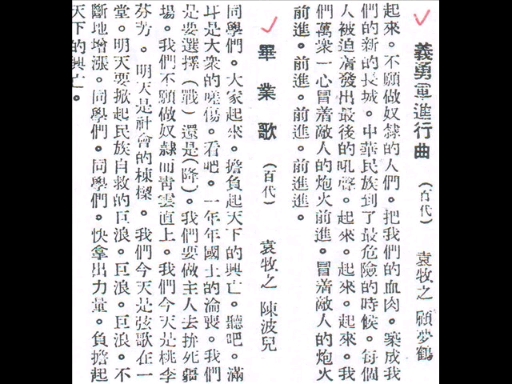 義勇軍進行曲 (百代) 袁牧之 顧夢鶴
起來。不願做奴隸的人們。把我們的血肉。築成我
們的新的長城。中華民族到了最危險的時候。每個
人被迫着發出最後的吼聲。起來。起來。起來。我
們萬衆一心冒着敵人的炮火前進。冒着敵人的炮火
前進。前進。前進。前進進。
畢業歌 (百代) 袁牧之 陳波兒
同學們。大家起來。擔負起天下的興亡。聽吧。滿
耳是大衆的嗟傷。看吧。一年年國土的淪喪。我們
是要選擇(戰)還是(降)。我們要做主人去拚死疆
場。我們不願做奴隸而靑雲直上。我們今天是桃李
芬芳。明天是社會的棟樑。我們今天是弦歌在一
堂。明天要掀起民族自救的巨浪。巨浪。巨浪。不
斷地增漲。同學們。同學們。快拿出力量。負擔起
天下的興亡。